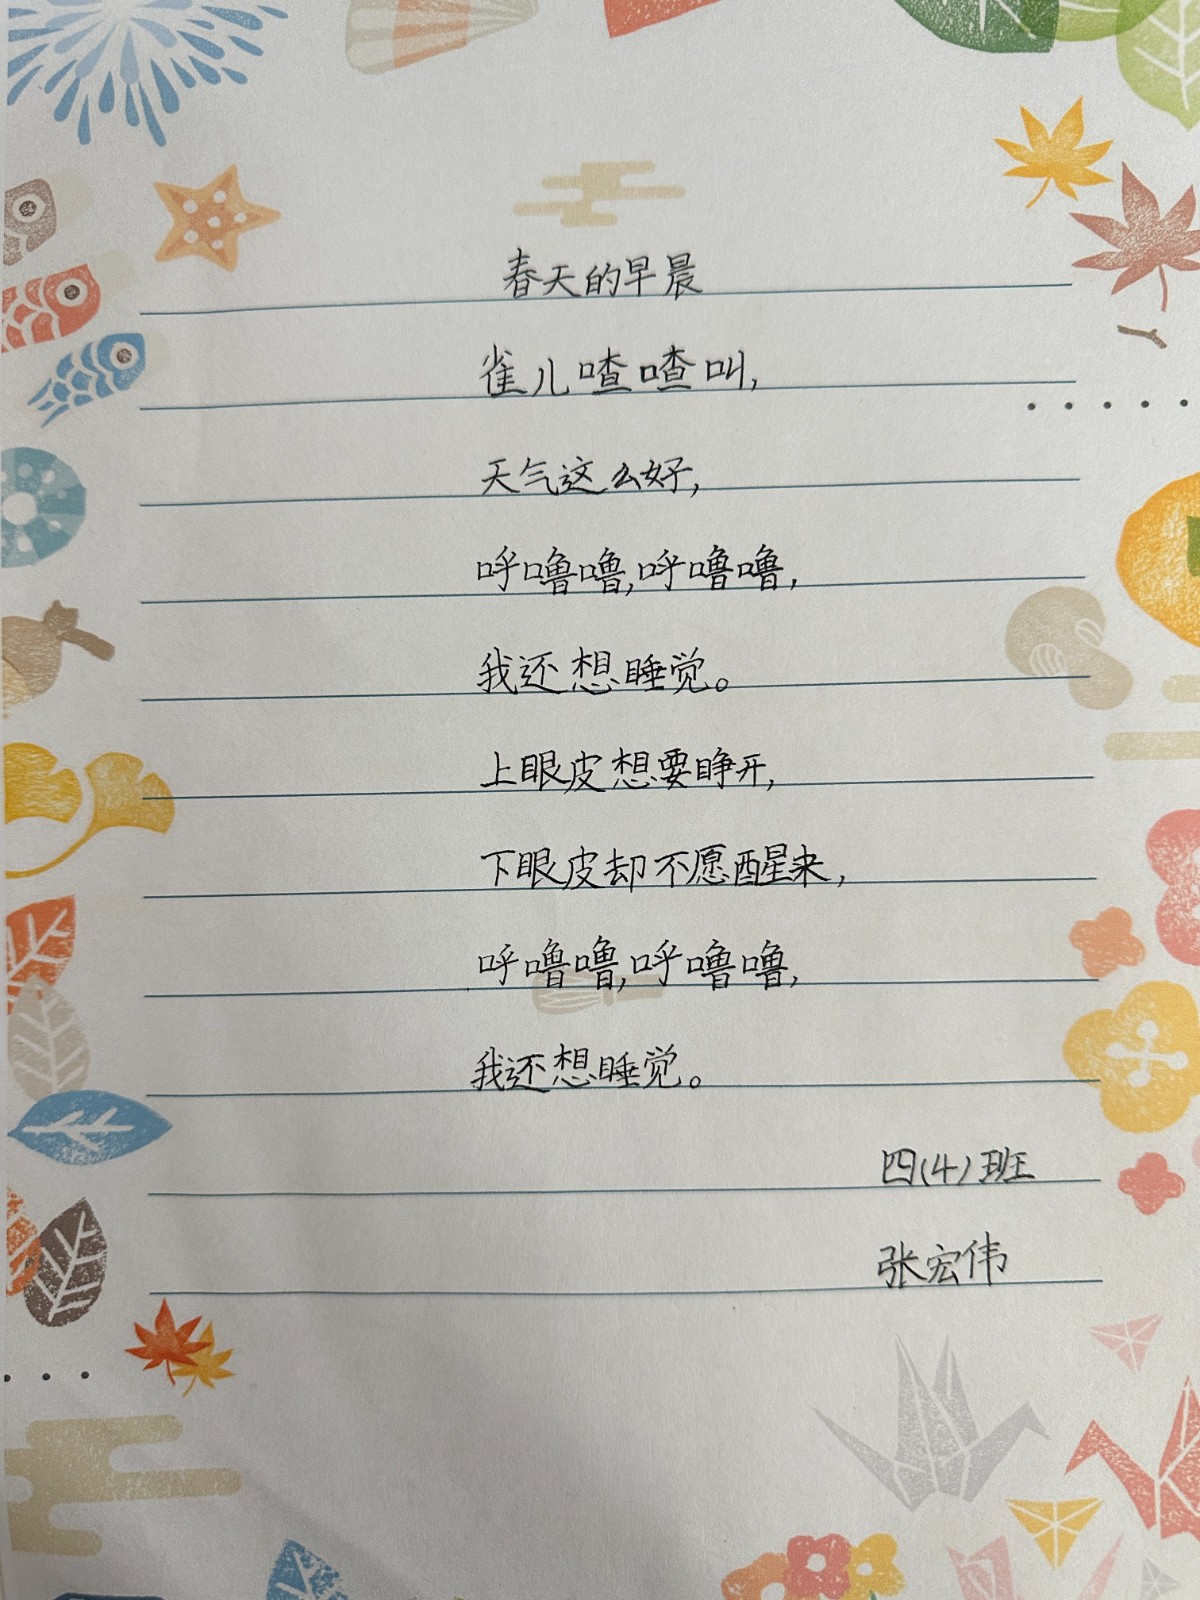 春天的早晨
雀儿喳喳叫,
天气这么好,
呼噜噜,呼噜噜,
我还想睡觉。
上眼皮想要睁开,
下眼皮却不愿醒来,
呼噜噜,呼噜噜,
我还想睡觉。
四(4)班
张宏伟